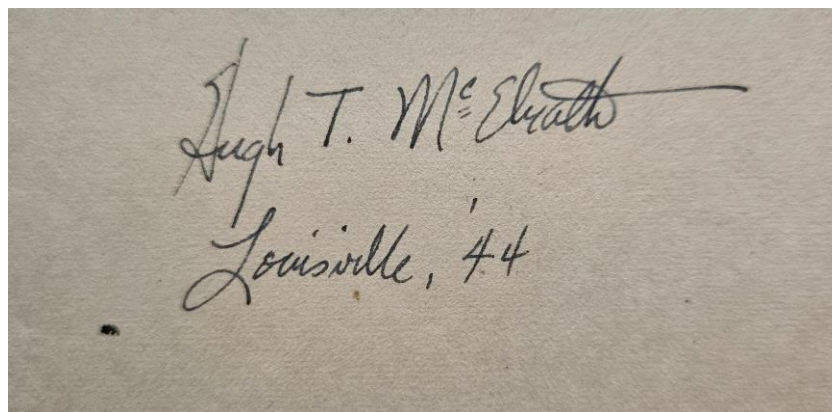 Hugh T. McElrath
Louisville, '44